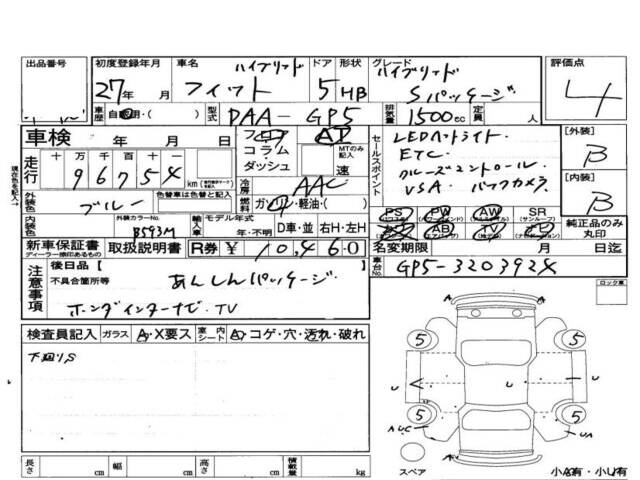 出品番号 初度登録年月 車名 ハイブリッド ドア 形状 グレード ハイブリッド 評価点
27年 月 フィット 5 HB Sパッケージ 4
車歴 自家用・( ) 型式 DAA-GP5 排気量 1500cc 定員 人
車検 年 月 日 フロア コラム ダッシュ AT MTのみ記入 速
セールスポイント LEDヘッドライト. [外装] B
ETC.
クルーズコントロール.
VSA. バックカメラ [内装] B
走行 十 万 千 百 十 一
9 6 7 5 4 km
冷房 AAC
外装色 ブルー 色替車は色替と記入 燃料 ガソリン・軽油・( )
内装色 外装カラーNo. B593M 輸入車 モデル年式 年・不明 D車・並 右H・左H
PS PW AW SR (サンルーフ) 純正品のみ丸印
AB TV
新車保証書 取扱説明書 R券 ¥ 10,460
ディーラー捺印あるもの
名変期限 月 日迄
車台No. GP5-3203924
注意事項 後日品 [ ]
不具合箇所等 あんしんパッケージ
ホンダインターナビ. TV
ロック車
検査員記入 ガラス A・X要ス 室内シート A・コゲ・穴・汚れ・破れ
下廻りS
5 5
U U U
5 5
AUC UA
A
スペア 小A有・小U有
長さ cm 幅 cm 高さ cm 積載量 kg